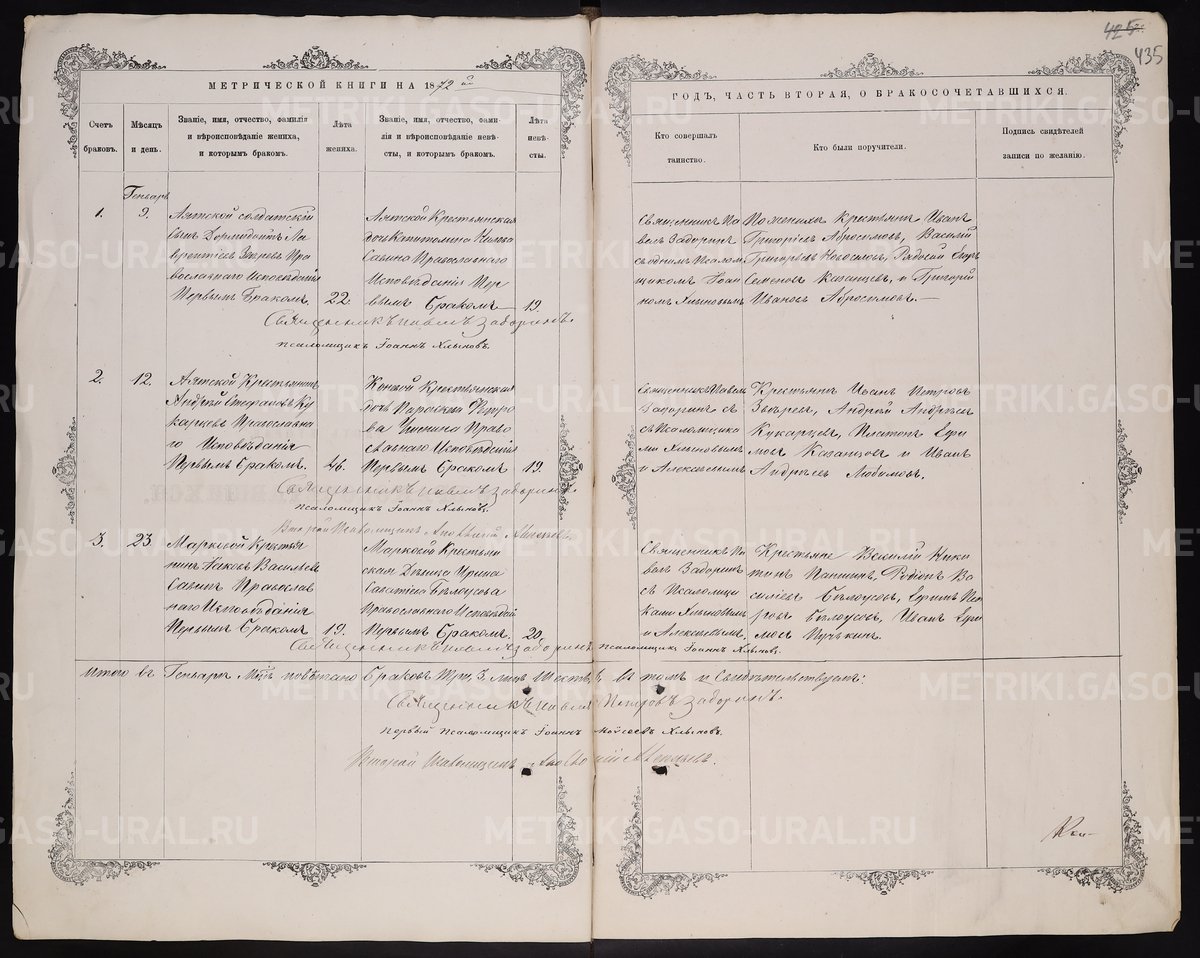 425
435
МЕТРИЧЕСКОЙ КНИГИ НА 1872 й
ГОДЪ, ЧАСТЬ ВТОРАЯ, О БРАКОСОЧЕТАВШИХСЯ.
Счетъ браковъ.
Мѣсяцъ и день.
Званіе, имя, отчество, фамилія
и вѣроисповѣданіе жениха,
и которымъ бракомъ.
Лѣта жениха.
Званіе, имя, отчество, фами-
лія и вѣроисповѣданіе невѣ-
сты, и которымъ бракомъ.
Лѣта невѣ-
сты.
Кто совершалъ
таинство.
Кто были поручители.
Подпись свидѣтелей
записи по желанію.
Генварь
1.
9.
Аятской солдатскій
сынъ Дормидонтъ Ла-
врентіевъ Пра-
вославнаго Исповѣданія
Первымъ Бракомъ.
22
Аятской Крестьянская
дочь Капитолина
Савина Православнаго
Исповѣданія Пер-
вымъ бракомъ
19.
Священникъ Па
велъ Задоринъ
съ однимъ Псалом
щикомъ Іоан
номъ Хлыновымъ
Крестьяне Иванъ
Григоріевъ Абросимовъ, Василій
Григорьевъ Рядовой Егоръ
Семеновъ Казанцевъ, и Григорій
Ивановъ Абросимовъ.—
Священникъ Павелъ Задоринъ.
Псаломщикъ Іоаннъ Хлыновъ.
2.
12.
Аятской Крестьянинъ
Андрей Стефановъ Ку
карцевъ Православна
го Исповѣданія
Первымъ бракомъ.
46.
Крестьянская
дочь Параскева Петро
ва Право
славнаго Исповѣданія
Первымъ бракомъ
19.
Священникъ Павелъ
Задоринъ съ
Псаломщика
ми Хлыновымъ
и Алексѣевымъ
Крестьяне Иванъ Петровъ
Звѣревъ, Андрей Андреевъ
Кукарцевъ, Платонъ Ефи
мовъ Казанцевъ и Иванъ
Андреевъ Любимовъ.
Священникъ Павелъ Задоринъ.
Псаломщикъ Іоаннъ Хлыновъ.
Второй Псаломщикъ
3.
23.
Марковой Крестья
нинъ Іаковъ Васильевъ
Савинъ Православ
наго Исповѣданія
Первымъ бракомъ
19.
Марковой Крестьян
ская Дѣвица Ирина
Саватіева Бѣлоусова
Православнаго Исповѣданія
Первымъ бракомъ.
20.
Священникъ Па
велъ Задоринъ
съ Псаломщи
ками Хлыновымъ
и Алексѣевымъ.
Крестьяне Василій Ники
тинъ Паншинъ, Родіонъ Ва
силіевъ Бѣлоусовъ, Ефимъ Пет
ровъ Бѣлоусовъ, Иванъ Ефи
мовъ
Священникъ Павелъ Задоринъ Псаломщикъ Іоаннъ Хлыновъ
Итого въ Генварѣ Мцѣ повѣнчано браковъ три, 3. лицъ шесть, 6. въ томъ и свидѣтельствуемъ:
Священникъ Павелъ Петровъ Задоринъ.
Первый Псаломщикъ Іоаннъ Моисеевъ Хлыновъ.
Второй Псаломщикъ
METRIKI.GASO-URAL.RU